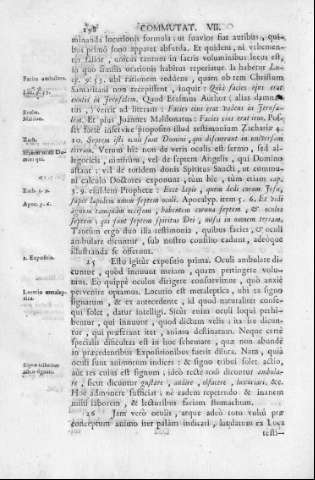 298 COMMUTAT. VII.
minanda locutionis formula: ut suavior fiat auribus, qui-
bus primò sono apparet absurda. Et quidem, ni vehemen-
ter fallor, unicus tantum in sacris voluminibus locus est,
in quo similis orationis habitus reperitur. Is habetur Luc.
Facies ambulans.
9. 53. ubi rationem reddens, quam ob rem Christum
Samaritani non recepissent, inquit: Quia facies ejus erat
Luc. 9. 53.
euntis in Jerusalem. Quod Erasmus Author (alias damna-
tus) vertit ad litteram: Facies ejus erat vadens in Jerusa-
Erasm.
lem. Et plus Joannes Maldonatus: Facies ejus erat iens. Pos-
Maldon.
set fortè inservire proposito illud testimonium Zachariæ 4.
10. Septem isti oculi sunt Domini, qui discurrunt in universam
Zach.
terram. Verum hic non de veris oculis est sermo, sed al-
Domi-
ni qui.
legoricis, nimirum, vel de septem Angelis, qui Domino
astant: vel de totidem donis Spiritus Sancti, ut commu-
ni calculo Doctores exponunt, tùm hic, tùm etiam cap.
Zach. 3. 9.
3. 9. ejusdem Prophetæ: Ecce lapis, quem dedi coram Jesu,
super lapidem unum septem oculi. Apocalyp. item 5. 6. Et vidi
Apoc. 5. 6.
agnum tamquam occisum, habentem cornua septem, & oculos
septem, qui sunt septem spiritus Dei, missi in omnem terram.
Tantùm ergo duo illa testimonia, quibus facies, & oculi
ambulare dicuntur, sub nostro consilio cadunt, adeòque
illustranda & offerenda.
1. Expositio.
25 Esto igitur expositio prima. Oculi ambulare di-
cuntur, quòd innuunt metam, quam pertingere volu-
mus. Eo quippè oculos dirigere consuevimus, quò anxiè
pervenire optamus. Locutio est metaleptica, ubi ex signo
Locutio metalep-
tica.
signatum, & ex antecedente, id quod naturaliter conse-
qui solet, datur intelligi. Sicut enim oculi loqui perhi-
bentur, qui innuunt, quod dictum velis; ita ire dicun-
tur, qui præferunt iter, animo destinatum. Neque certè
specialis difficultas est in hoc schemate, quæ non abundè
in præcedentibus Expositionibus fuerit diluta. Nam, quià
oculi sunt animorum indices: & signo tribui solet actio,
aut res cujus est signum; ideò rectè oculi dicuntur ambula-
re, sicut dicuntur gustare, audire, olfacere, invocare, &c.
Hoc admonere sufficiat; ne eadem repetendo & inanem
mihi laborem, & lectoribus faciam stomachum.
26 Jam verò oculis, atque adeò toto vultu præ
conceptum animo iter palàm indicari, laudatum ex Luca
testi-